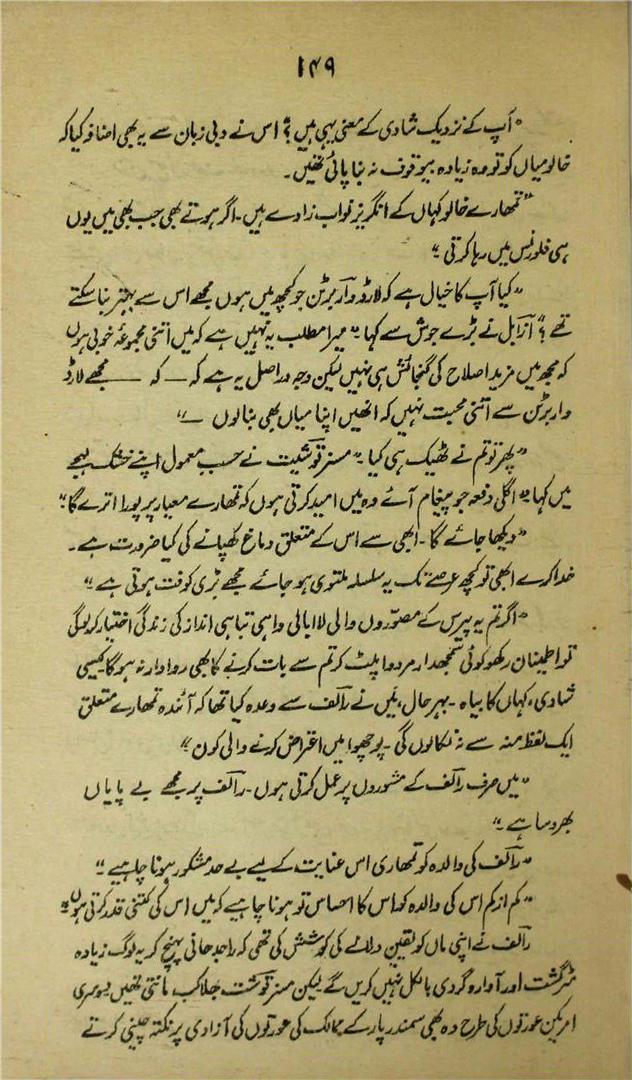 ۱۴۹
"آپ کے نزدیک شادی کے معنی یہی ہیں؟ اس نے دبی زبان سے یہ بھی اضافہ کیا کہ
خالو میاں کو تو وہ زیادہ بیوقوف نہ بنا پائی تھیں۔
"تمھارے خالو کہاں کے انگریز نواب زادے ہیں۔ اگر ہوتے بھی جب بھی میں یوں
ہی فلورنس میں رہا کرتی"
"کیا آپ کا خیال ہے کہ لارڈ وار برٹن جو کچھ میں ہوں مجھے اس سے بہتر بنا سکتے
تھے؟" آزابل نے بڑے جوش سے کہا "میرا مطلب یہ نہیں ہے کہ میں اتنی مجموعۂ خوبی ہوں
کہ مجھ میں مزید اصلاح کی گنجائش ہی نہیں لیکن وجہ دراصل یہ ہے کہ — کہ — مجھے لارڈ
وار برٹن سے اتنی محبت نہیں کہ انھیں اپنا میاں بھی بنا لوں —"
"پھر تو تم نے ٹھیک ہی کیا" مسز ٹوشیٹ نے حسب معمول اپنے خشک لہجے
میں کہا "اگلی دفعہ جو پیغام آئے وہ میں امید کرتی ہوں کہ تمھارے معیار پر پورا اترے گا"
"دیکھا جائے گا۔ ابھی سے اس کے متعلق دماغ کھپانے کی کیا ضرورت ہے۔
خدا کرے ابھی تو کچھ عرصے تک یہ سلسلہ ملتوی ہو جائے مجھے بڑی کوفت ہوتی ہے"
"اگر تم یہ پیرس کے مصوّروں والی لا ابالی واہی تباہی انداز کی زندگی اختیار کر لوگی
تو اطینان رکھو کوئی سمجھدار مردوا پلٹ کر تم سے بات کرنے کا بھی روادار نہ ہوگا کیسی
شادی، کہاں کا بیاہ۔ بہر حال، میں نے رالف سے وعدہ کیا تھا کہ آئندہ تمھارے متعلق
ایک لفظ منہ سے نہ نکالوں گی۔ پوچھو میں اعتراض کرنے والی کون"
"میں صرف رالف کے مشوروں پر عمل کرتی ہوں۔ رالف پر مجھے بے پایاں
بھروسا ہے"
"رالف کی والدہ کو تمھاری اس عنایت کے لیے بے حد مشکور ہونا چاہیے"
"کم از کم اس کی والدہ کو اس کا احساس تو ہونا چاہیے کہ میں اس کی کتنی قدر کرتی ہوں"
رالف نے اپنی ماں کو یقین دلانے کی کوشش کی تھی کہ راجدھانی پہنچ کر یہ لوگ زیادہ
مٹر گشت اور آوارہ گردی بالکل نہیں کریں گے لیکن مسز ٹوشٹ بھلا کب مانتی تھیں دوسری
امریکن عورتوں کی طرح وہ بھی سمندر پار کے ممالک کی عورتوں کی آزادی پر نکتہ چینی کرتے